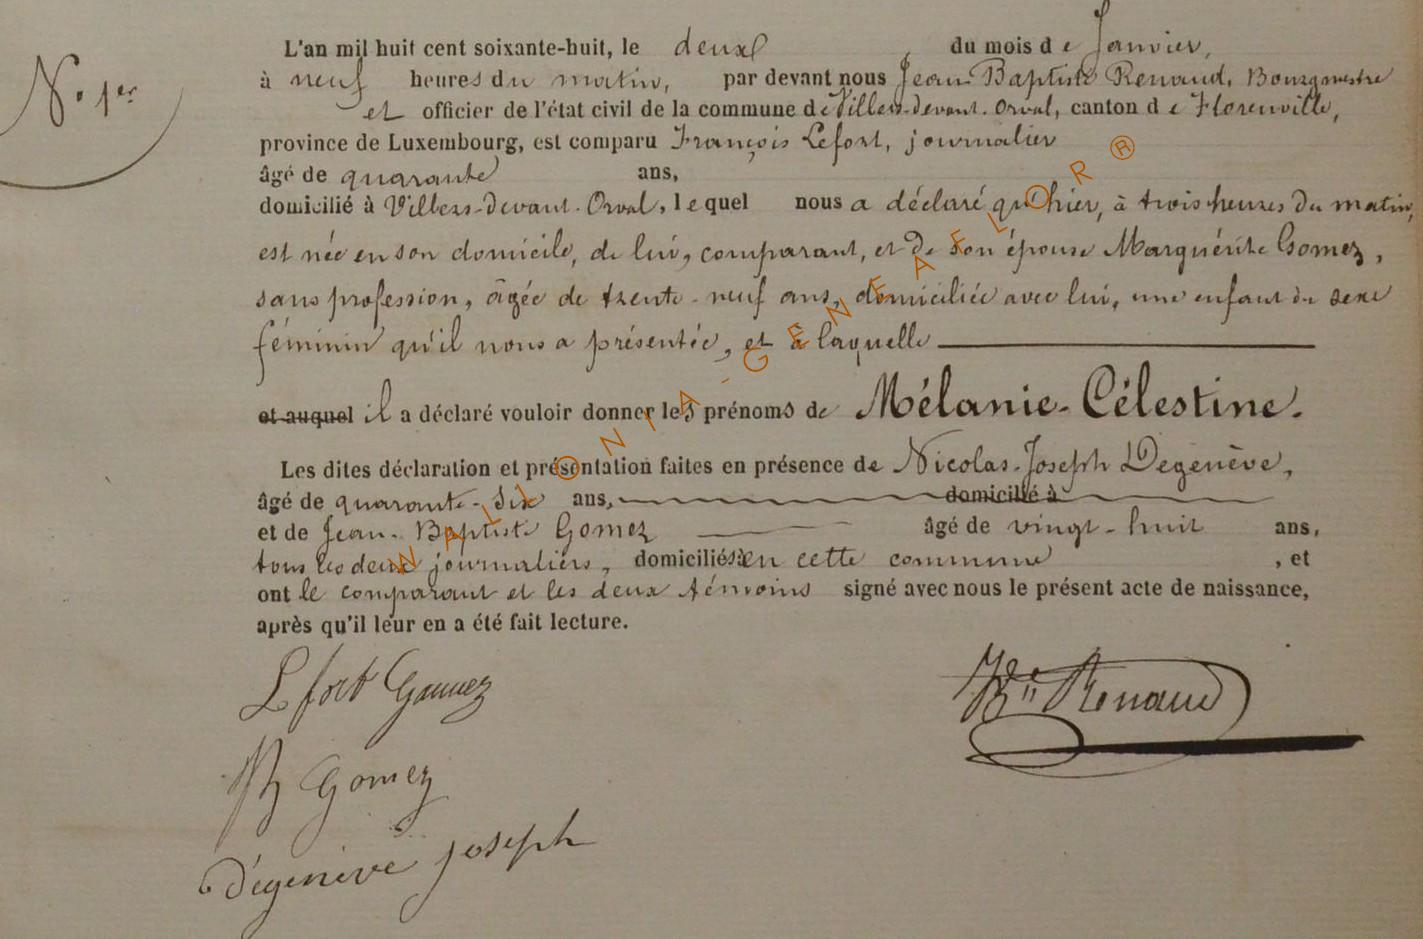 N° 1er
L'an mil huit cent soixante-huit, le deux, du mois de Janvier,
à neuf heures du matin, par devant nous Jean-Baptiste Renaud, Bourgmestre
et officier de l'état civil de la commune de Villers-devant-Orval, canton de Florenville,
province de Luxembourg, est comparu François Lefort, journalier
âgé de quarante ans,
domicilié à Villers-devant-Orval, lequel nous a déclaré qu'hier, à trois heures du matin,
est née en son domicile, de lui, comparant, et de son épouse Marguérite Gomez,
sans profession, âgée de trente-neuf ans, domiciliée avec lui, une enfant du sexe
féminin qu'il nous a présentée, et à laquelle
et auquel il a déclaré vouloir donner les prénoms de Mélanie-Célestine.
Les dites déclaration et présentation faites en présence de Nicolas-Joseph Degenève,
âgé de quarante-six ans, domicilié à
et de Jean-Baptiste Gomez âgé de vingt-huit ans,
tous les deux journaliers, domiciliés à en cette commune, et
ont le comparant et les deux témoins signé avec nous le présent acte de naissance,
après qu'il leur en a été fait lecture.
Lefort Gomez
JB Gomez
Dégenève joseph
JBte Renaud
WALLONIA-GENEAFLOR®